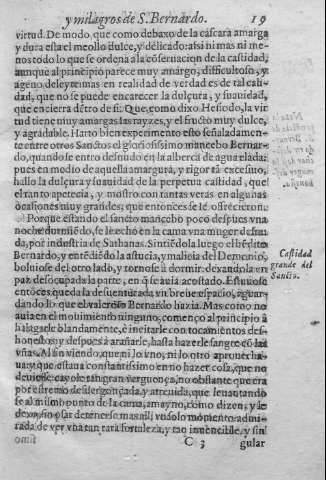 y milagros de S. Bernardo. 19
virtud. De modo, que como debaxo de la cascara amarga
y dura esta el meollo dulce, y delicado: assi ni mas ni me-
nos todo lo que se ordena a la cõseruacion de la castidad,
aunque al principio parece muy amargo, difficultoso, y
ageno, deleytemas en realidad de verdad es de tal cali-
dad, que no se puede encarecer la dulçura, y suauidad,
que encierra dẽtro de si. Que como dixo Hesiodo, la vir
tud tiene muy amargas las rayzes, y el fructo muy dulce,
y agradable. Harto bien experimento esto señaladamen-
te entre otros Sanctos el gloriosissimo mancebo Bernar-
do, quando se entro desnudo en la alberca de agua elada:
pues en medio de aquella amargura, y rigor tã excessiuo,
hallo la dulçura y suauidad de la perpetua castidad, que
el tanto apetecia, y mostro con tantas veras en algunas
ocasiones muy grandes, que entonces se le offrecieron.
Porque estando el sancto mancebo poco despues vna
noche durmiẽdo, se le echo en la cama vna muger desnu
da, por industria de Sathanas. Sintiẽdola luego el bẽdito
Bernardo, y entẽdiẽdo la astucia, y malicia del Demonio,
boluiose del otro lado, y tornose á dormir: dexandola en
paz desocupada la parte, en que auia acostado. Estuuose
entõces queda la desuenturada vn breue espacio, aguar-
dando lo que el valeroso Bernardo haria. Mas como no
auia en el mouimiento ninguno, començo al principio à
halagarle blandamente, è incitarle con tocamientos des-
honestos: y despues à arañarle, hasta hazerle sangre cõ las
vñas. Al fin viendo, que ni lo vno, ni lo otro aprouecha-
ua: y que estaua constantissimo en no hazer cosa, que no
deuiesse: cayole tan gran verguença, no obstante que era
por estremo desuergonçada, y atreuida, que leuantando
se al mismo punto de la cama, amayno, como dizen, y se
de no osar detenerse mas alli vn solo momento, admi-
rada de ver vna tan rara fortaleza, y tan inuencible, y sin
C 3 gular
Castidad
grande del
Sancto.